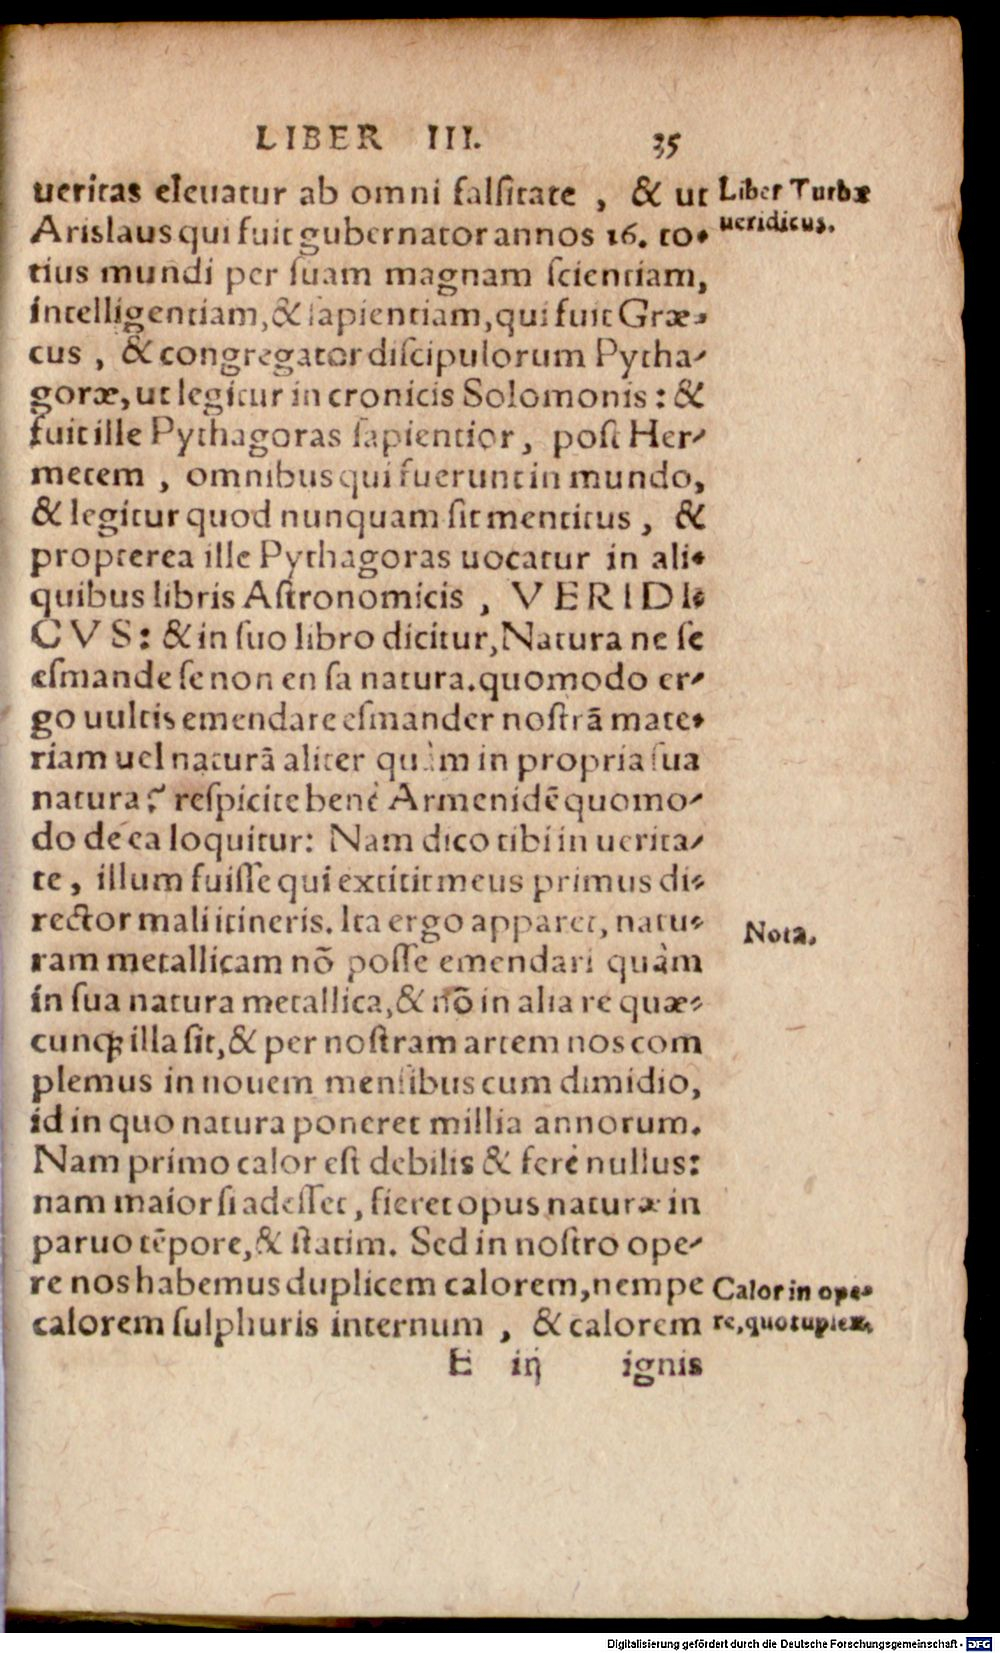 LIBER III. 35
ueritas eleuatur ab omni falſitate , & ut
Liber Turbæ
ueridicus.
Arislaus qui fuit gubernator annos 16. to-
tius mundi per ſuam magnam ſcientiam,
intelligentiam, & ſapientiam, qui fuit Græ-
cus , & congregator diſcipulorum Pytha-
goræ, ut legitur in cronicis Solomonis : &
fuit ille Pythagoras ſapientior, poſt Her-
metem , omnibus qui fuerunt in mundo,
& legitur quod nunquam ſit mentitus , &
propterea ille Pythagoras uocatur in ali-
quibus libris Aſtronomicis , VERIDI-
CVS: & in ſuo libro dicitur, Natura ne ſe
eſmande ſe non en ſa natura. quomodo er-
go uultis emendare eſmander noſtrã mate-
riam uel naturã aliter quàm in propria ſua
natura? reſpicite benè Armenidẽ quomo-
do de ea loquitur: Nam dico tibi in uerita-
te, illum fuiſſe qui extitit meus primus di-
rector mali itineris. Ita ergo apparet, natu-
Nota.
ram metallicam nõ poſſe emendari quàm
in ſua natura metallica, & nõ in alia re quæ-
cunqꝫ illa ſit, & per noſtram artem nos com
plemus in nouem menſibus cum dimidio,
id in quo natura poneret millia annorum.
Nam primo calor eſt debilis & ferè nullus:
nam maior ſi adeſſet, fieret opus naturæ in
paruo tẽpore, & ſtatim. Sed in noſtro ope-
re nos habemus duplicem calorem, nempe
Calor in ope-
re, quotuplex.
calorem ſulphuris internum , & calorem
E iij ignis
Digitalisierung gefördert durch die Deutsche Forschungsgemeinschaft - DFG